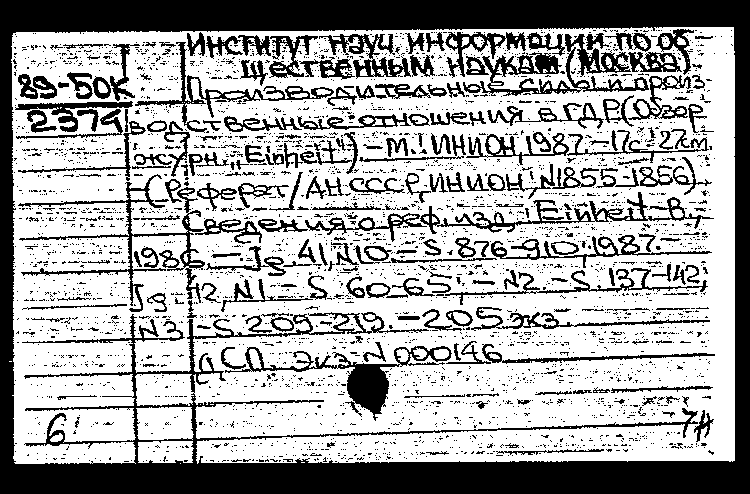 Институт науч. информации по об
щественным наукам (Москва).
89-50К
Производительные силы и произ-
2374
водственные отношения в ГДР (Обзор
журн. „Einheit"). - М.: ИНИОН, 1987. - 17с.; 27см.
- (Реферат / АН СССР, ИНИОН; N1855-1856).
Сведения о реф. изд.: Einheit. - B.,
1986. - Jg. 41, N10. - S. 876-910; 1987. -
Jg. 42, N1. - S. 60-65; - N2. - S. 137-142;
N3. - S. 209-219. - 205 экз.
ДСП. Экз. N 000146
6!